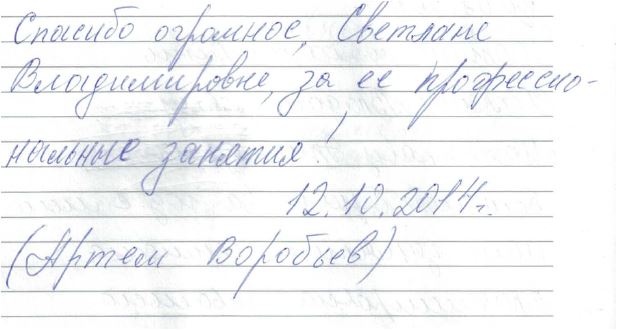 Спасибо огромное, Светлане
Владимировне, за ее профессио-
нальные занятия!
12.10.2014г.
(Артем Воробьев)